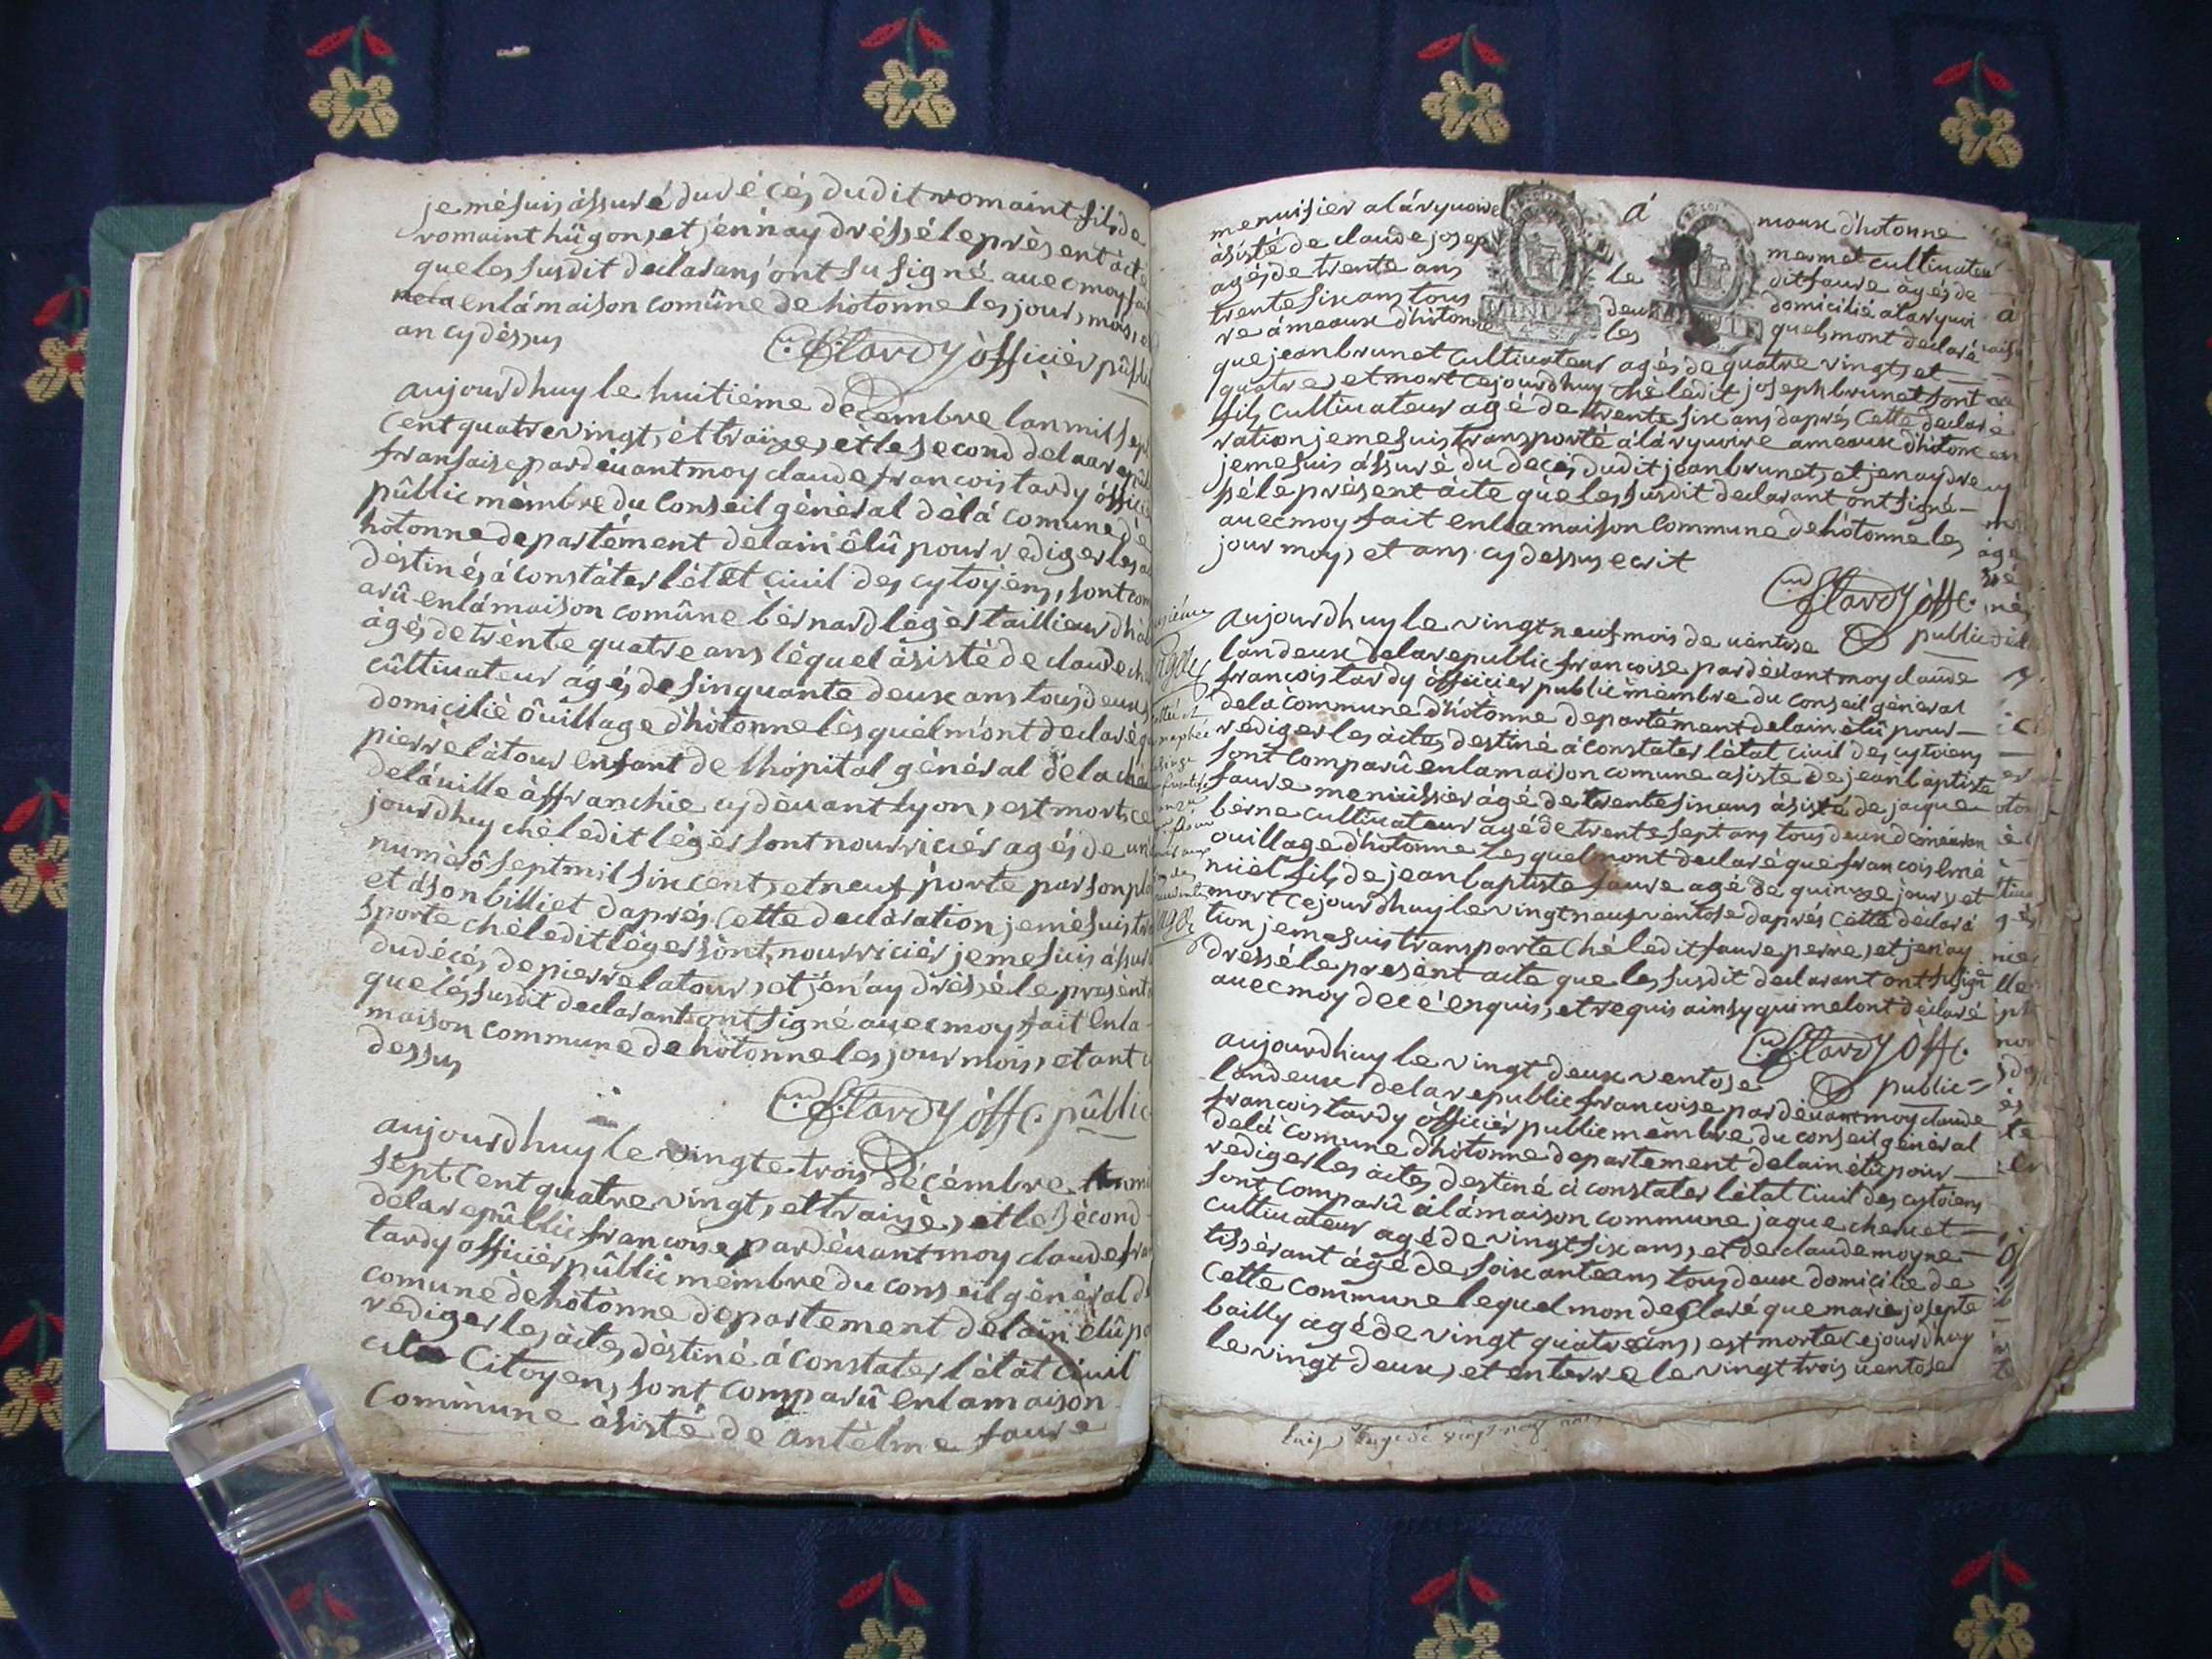 je mésuis ássuré du décés dudit romaint fils de
romaint hûgon, et jén'náy dréssé le présent ácte
que les susdit declarans ont su signé avec moy fait
en lá maison comûne de hòtonne les jour, mois, et
an cy déssus
C. f. tardy òfficiér pûblic
aujourdhuy le huitiéme décembre lan mil sept
cent quatre vingt, et traize, et le second de la repûb
fransaise par dèvant moy claude francois tardy óffici
pûblic mèmbre du conseil général dè lá comune dè
hotonne departément de lain êlû pour rediger les ac
déstinés á constáter létát civil des cytoyéns, sont com
arû en lá maison comûne bérnard légèr tailleur dhab
ágés de trènte quatre ans léquel ásisté de claude ch
cûltivateur ágés de sinquante deux ans tous deux
domicilié ôvillage dhòtonne lèsquél mónt declaré q
pierre látour enfant de lhòpital général de la cha
de lá ville áffranchie cy dèvant lyon, est mort ce
jourdhuy ché le dit légèr sont nourriciér agés de un
numèrô sept mil six cent, et neuf porte par son plo
et á son billiet daprés cette declàration je mésuis tra
sporte ché le dit léger sònt nourriciér je me suis ássur
du décés de pierre latour, et jén'áy dréssé le présent
que lés susdit declárant ont signé avec moy fait en la
maison commune de hòtonne les jour mois, et ant c
dessus
C. f. tardy òffc. pûblic
aujourdhuy le vingte trois décémbre mil
sept cent quatre vingt, et traizè, et le sècond
de la repûblic francoise par dèvant moy claude fran
tardy officièr pûblic mémbre du conseil général de
comune de hotònne departement de lain élû po
rediger les àctes dèstiné á constater létát civil
Citoyen, sont comparû en la maison
commùne àsisté de antèlme faure
menuisier a láryvoire á meaux dhotonne
àsisté de claude josep le mermet cultivateur
agés de trente ans dit faure agés de
trente six ans tous deux domicilié alaryvoi
re á meaux dhotonne les quels mont declaré
que jean brunet cultivateur agés de quatre vingt, et
quatre, et mort ce jourdhuy ché le dit joseph brunet sont
fils cultivateur agé de trente six ans daprés cette declarè
ration je me suis transporté á láryvoire ameaux dhotone
je me suis ássuré du decés dudit jean brunet, et jen ay dre
sé le présent ácte qùe les susdit declarant ont signé
avec moy fait en la maison commune de hòtonne les
jour moy, et ans cy dessus ecrit
C. f. tardy òffc.
public
aujourdhuy le vingt neuf mois de ventose
lan deux de la republic francoise par dèvant moy claude
francois tardy òfficier public mèmbre du conseil gènéral
de lá commune dhòtonne departèment de lain èlû pour
rediger les àctes destiné á constater létat civil des cytoiens
sont comparû en la maison comune asiste de jean baptiste
faure menuissier ágé de trente six ans ásisté de jacque
berne cultivateur agé de trente sept ans tous deux demeuran
ovillage dhòtonne les quel mont declaré que francois
fils de jean baptiste faure agé de quinze jours, et
mort ce jourdhuy le vingt neuf ventose daprés cette declará
tion je me suis transporte ché le dit faure perre, et jen ay
dréssé le presènt acte que les susdit declarant ont su signé
avec moy de ce énquis, et requis ainsy qui me lont dèclaré
C. f. tardy òffc.
public
aujourdhuy le vingt deux ventose
lan deux de la republic francoise par dèvant moy claude
francois tardy òfficiér public mémbre du conseil général
de lá comune dhòtonne departement de lain élû pour
rediger les áctes destiné á constater létat civil des cytoiens
sont comparû á lá maison commune jaque chervet
cultivateur agé de vingt six ans, et de claude moyne
tissérant ágé de soixante ans tous deux domicilie de
cette commune lequel mon declaré que marie josepte
bailly agé de vingt quatre ans, est morte ce jourdhuy
le vingt deux, et enterre le vingt trois ventose